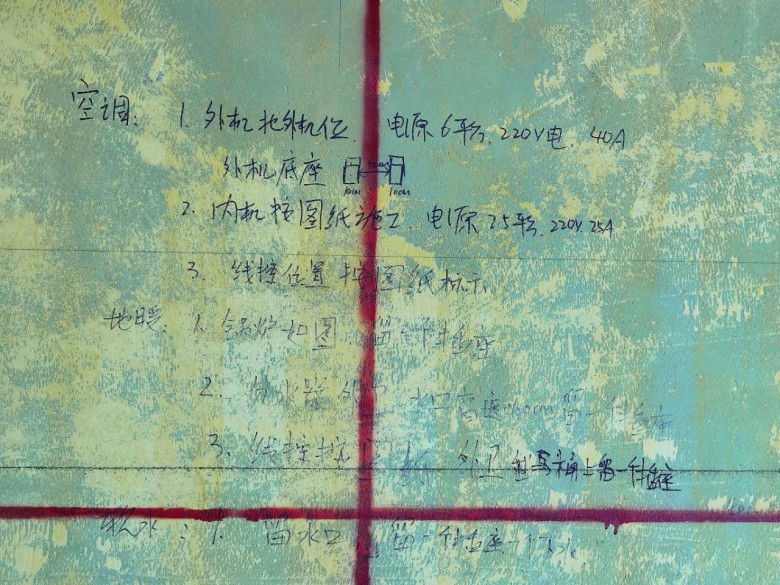 空调: 1. 外机北外机位. 电源6平方. 220V电. 40A
外机底座 10cm 10cm
2. 内机按图纸施工. 电源2.5平方. 220V. 25A
3. 线控位置按图纸标示
地暖: 1. 锅炉如图, 留一个插座
2. 分水器 水口高 留一个插座
3. 线控按图 外卫 马桶上留一个插座
软水: 1. 留水口, 留一个插座一个下水